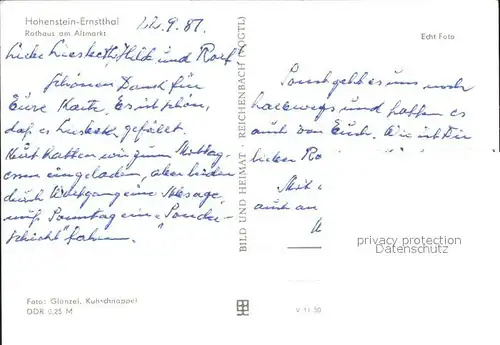 Hohenstein-Ernstthal
Rathaus am Altmarkt
22.9.87.
Echt Foto
Liebe Liesbeth, Hilde und Rolf
Schönen Dank für
Eure Karte. Es ist schön,
daß es Lisbeth gefällt.
hatten wir zum Mittag-
essen eingeladen, aber leider
durch Wolfgang eine Absage,
muß Sonntag eine "Sonder-
schicht" fahren.
BILD UND HEIMAT · REICHENBACH (VOGTL)
Sonst geht es uns noch
halbwegs und hoffen es
auch von Euch. Wie ist Dir
lieben
Mit
auch an
privacy protection
Datenschutz
Foto: Glänzel, Kuhschnappel
DDR 0,25 M
V 11 50